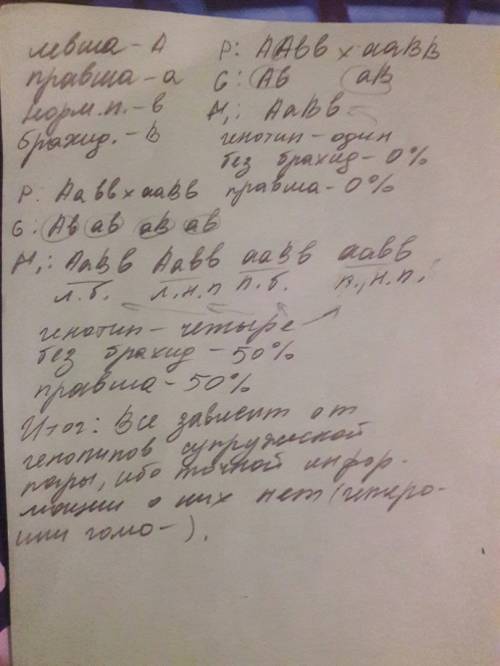 левша - А
правша - а
норм.п. - в
брахид. - В
Р: ААвв х ааВВ
G: Ав аВ
F₁: АаВв
генотип - один
без брахид - 0%
правша - 0%
Р: Аавв х ааВв
G: Ав ав аВ ав
F₁: АаВв Аавв ааВв аавв
л.б. л.н.п п.б. п., н.п.
генотип - четыре
без брахид - 50%
правша - 50%
Итог: Все зависит от
генотипов супружеской
пары, ибо точной инфор-
мации о них нет (гетеро-
или гомо-).